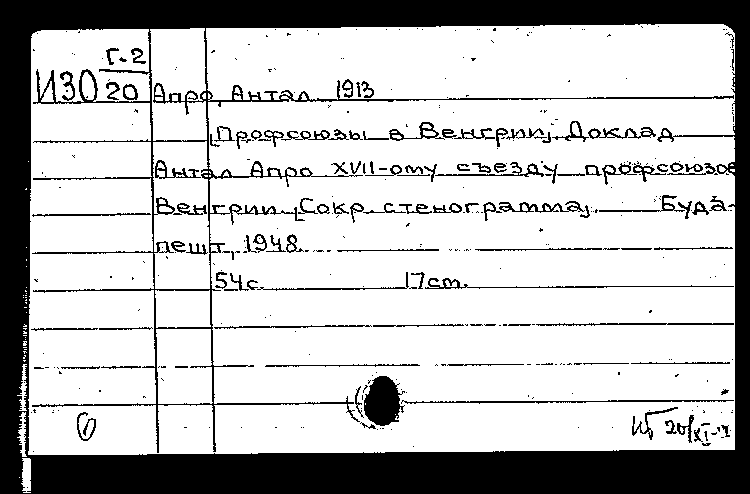 Г-2
ИЗО 20 Апро, Антал 1913
[Профсоюзы в Венгрии]. Доклад
Антал Апро XVII-ому съезду профсоюзов
Венгрии. [Сокр. стенограмма]. Буда-
пешт, 1948.
54с. 17см.
20/XI-